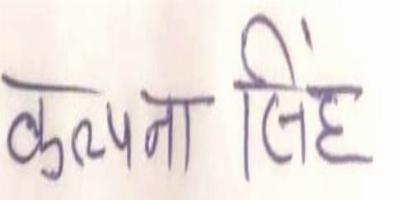 कल्पना सिंह